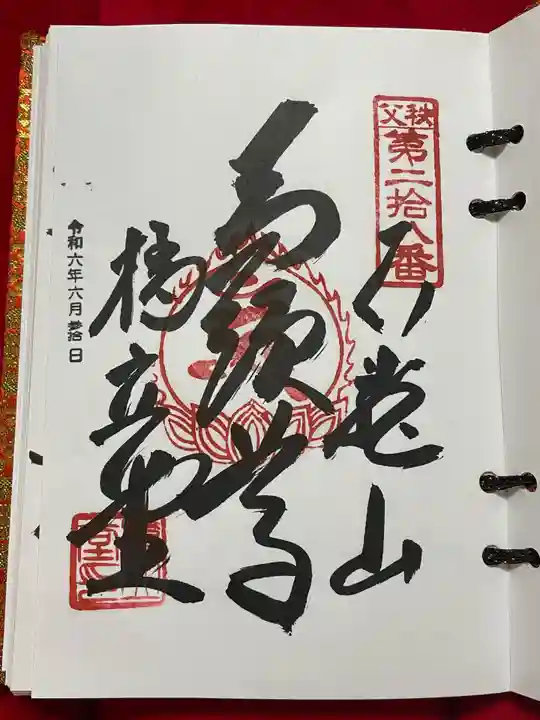 秩父
第二拾八番
石龍山
馬頭尊
橋立堂
令和六年六月拾日